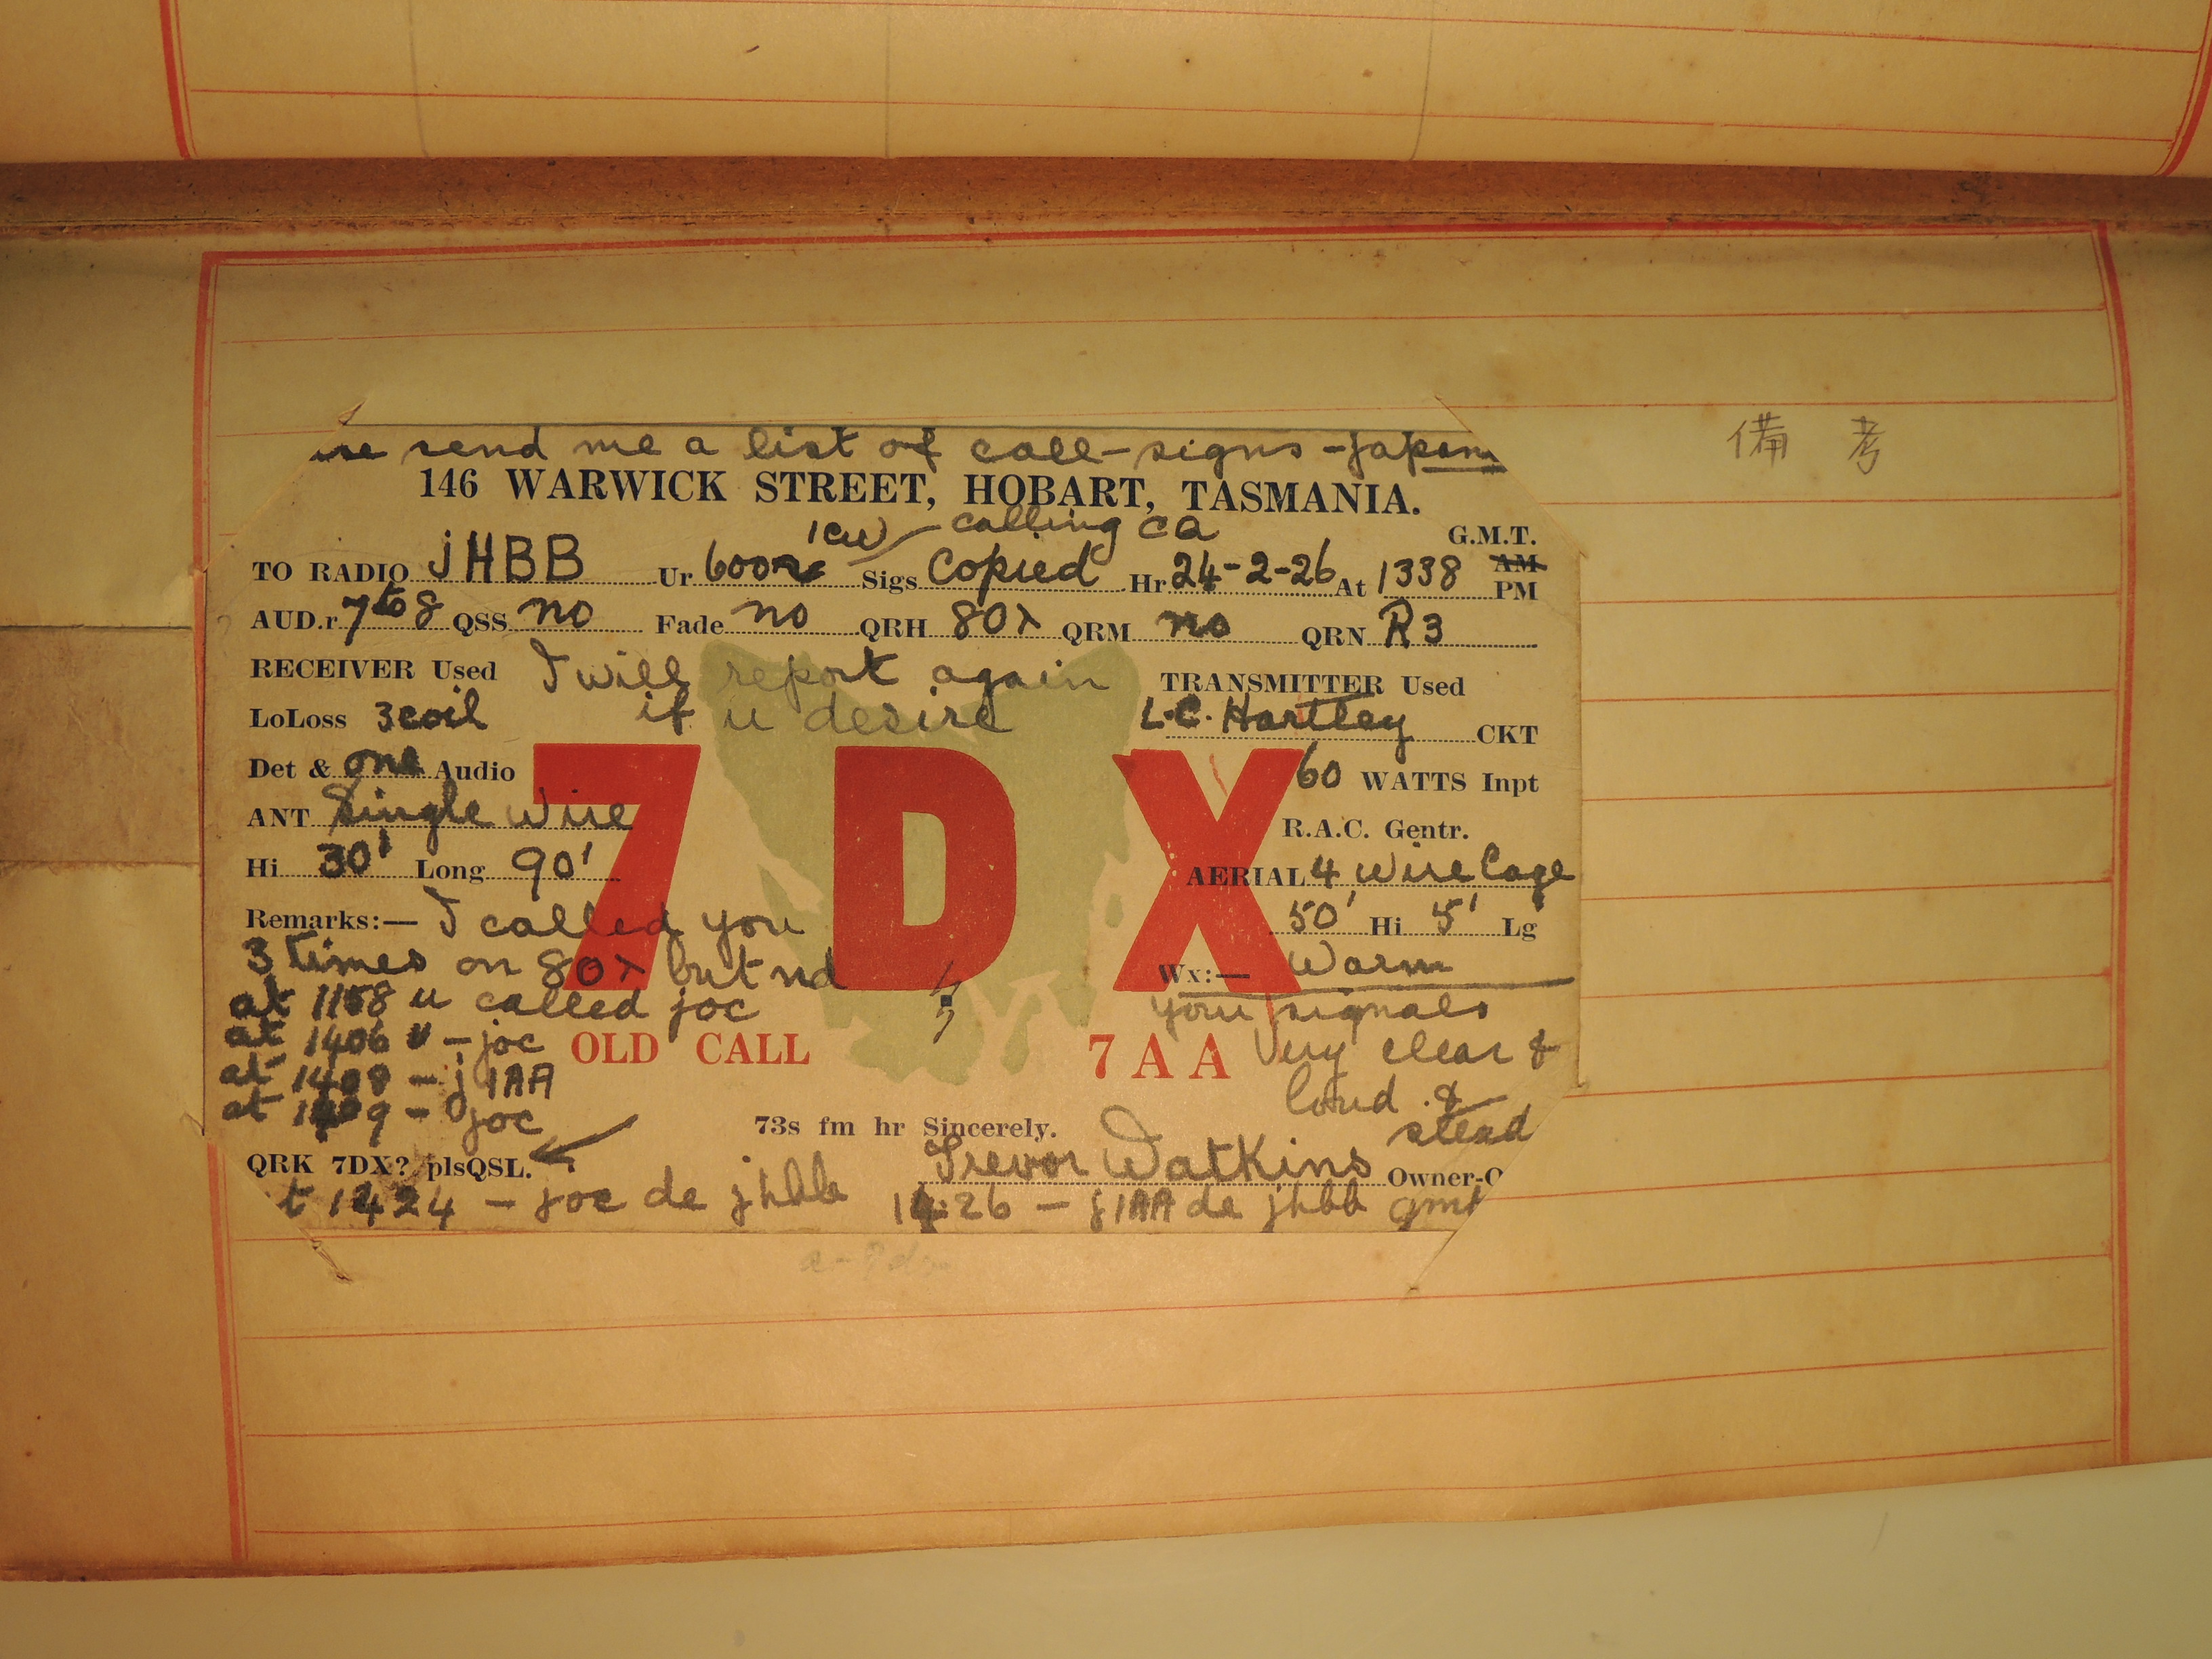 send me a list of call-signs - Japan
146 WARWICK STREET, HOBART, TASMANIA.
icw - calling ca
G.M.T.
TO RADIO jHBB Ur 600 Sigs Copied Hr 24-2-26 At 1338 AM PM
AUD.r 7 to 8 QSS no Fade no QRH 80λ QRM no QRN R3
RECEIVER Used I will report again TRANSMITTER Used
LoLoss 3coil if u desire L.C. Hartley CKT
Det & one Audio 60 WATTS Inpt
7DX
ANT Single Wire R.A.C. Gentr.
Hi 30' Long 90' AERIAL 4 Wire Cage
Remarks:— I called you 50' Hi 5' Lg
3 times on 80λ but nd Wx:— Warm
at 1158 u called joc your signals
at 1406 u - joc OLD CALL 7AA Very clear &
at 1408 - j1AA loud . &
at 1409 - joc 73s fm hr Sincerely. stead
QRK 7DX? plsQSL. Trevor Watkins Owner-O
t 1424 - joc de jhbb 1426 - j1AA de jhbb gmt
備考